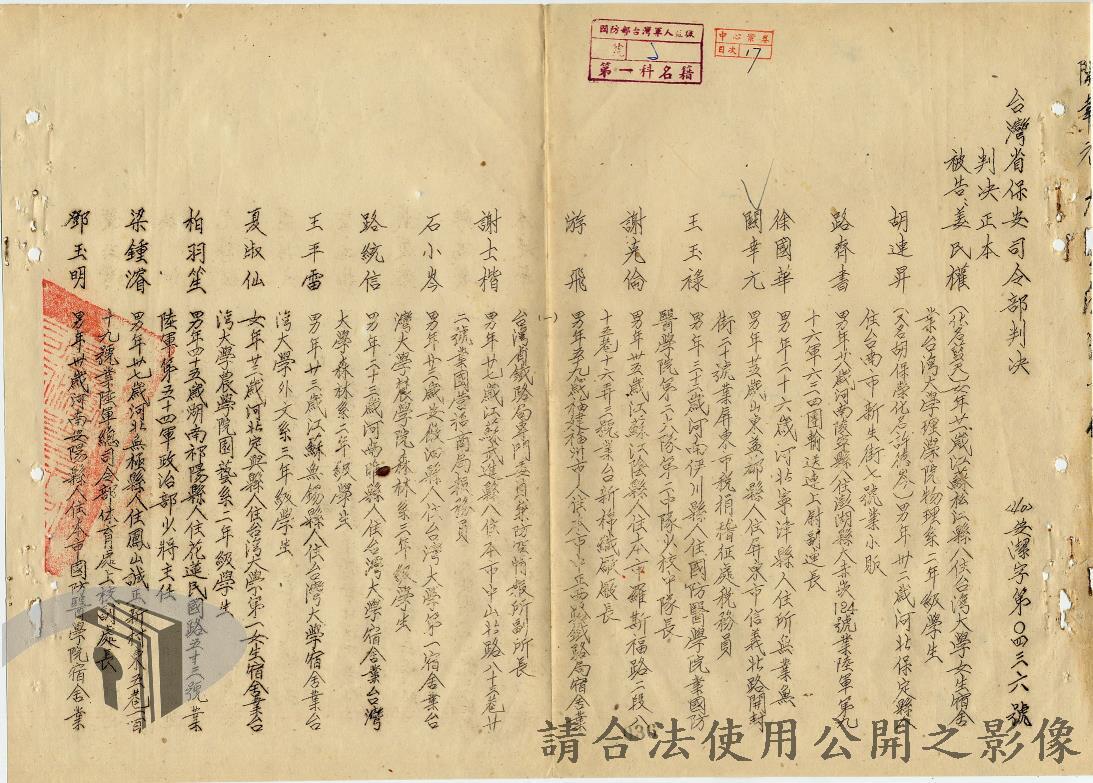 台灣省保安司令部判決
㈣安潔字第〇四三六號
判決正本
被告 姜民權
女年廿一歲江蘇松江縣人住台灣大學女生宿舍
業台灣大學理學院物理系二年級學生
胡連昇
男年卅二歲河北保定縣人
住台南市新生街七號業小販
路齊書
號業陸軍第九
十六軍六三四團輸送連上尉副連長
徐國華
男年二十六歲河北寧津縣人住所無業無
闞章元
男年廿五歲山東益都縣人住屏東市信義北路開封
街二十號業屏東市稅捐稽征處稅務員
王玉祿
男年三十二歲河南伊川縣人住國防醫學院業國防
醫學院第六隊第六中隊少校中隊長
謝堯倫
男年卅五歲江蘇江陰縣人住本市羅斯福路二段八
十三巷十六弄三號業台新棉織廠廠長
游飛
男年五九歲福建福州市人住本市中正西路鐵路局宿舍業
台灣省鐵路局專門委員兼防空情報所副所長
謝士楷
男年廿七歲江蘇武進縣人住本市中山北路八十三巷廿
二號業國營招商局報務員
石小岑
男年廿三歲
人住台灣大學第一宿舍業台
灣大學農學院森林系三年級學生
路統信
男年二十三歲河南
縣人住台灣大學宿舍業台灣
大學森林系二年級學生
王平雷
男年廿三歲江蘇無錫縣人住台灣大學宿舍業台
灣大學外文系三年級學生
夏淑仙
女年廿二歲河北定興縣人住台灣大學第一女生宿舍業台
灣大學農學院園藝系二年級學生
柏羽笙
男年四五歲湖南祁陽縣人住花蓮民國路五十三號業
陸軍第五十四軍政治部少將主任
梁鍾濬
男年卅七歲河北無極縣人住鳳山誠正新村東五巷一百
十九號業陸軍總司令部体育處上校副處長
鄧玉明
男年卅歲河南安陽縣人住本市國防醫學院宿舍業
國防部台灣軍人監獄
號
第一科名籍
中心業卷
目次 17
請合法使用公開之影像